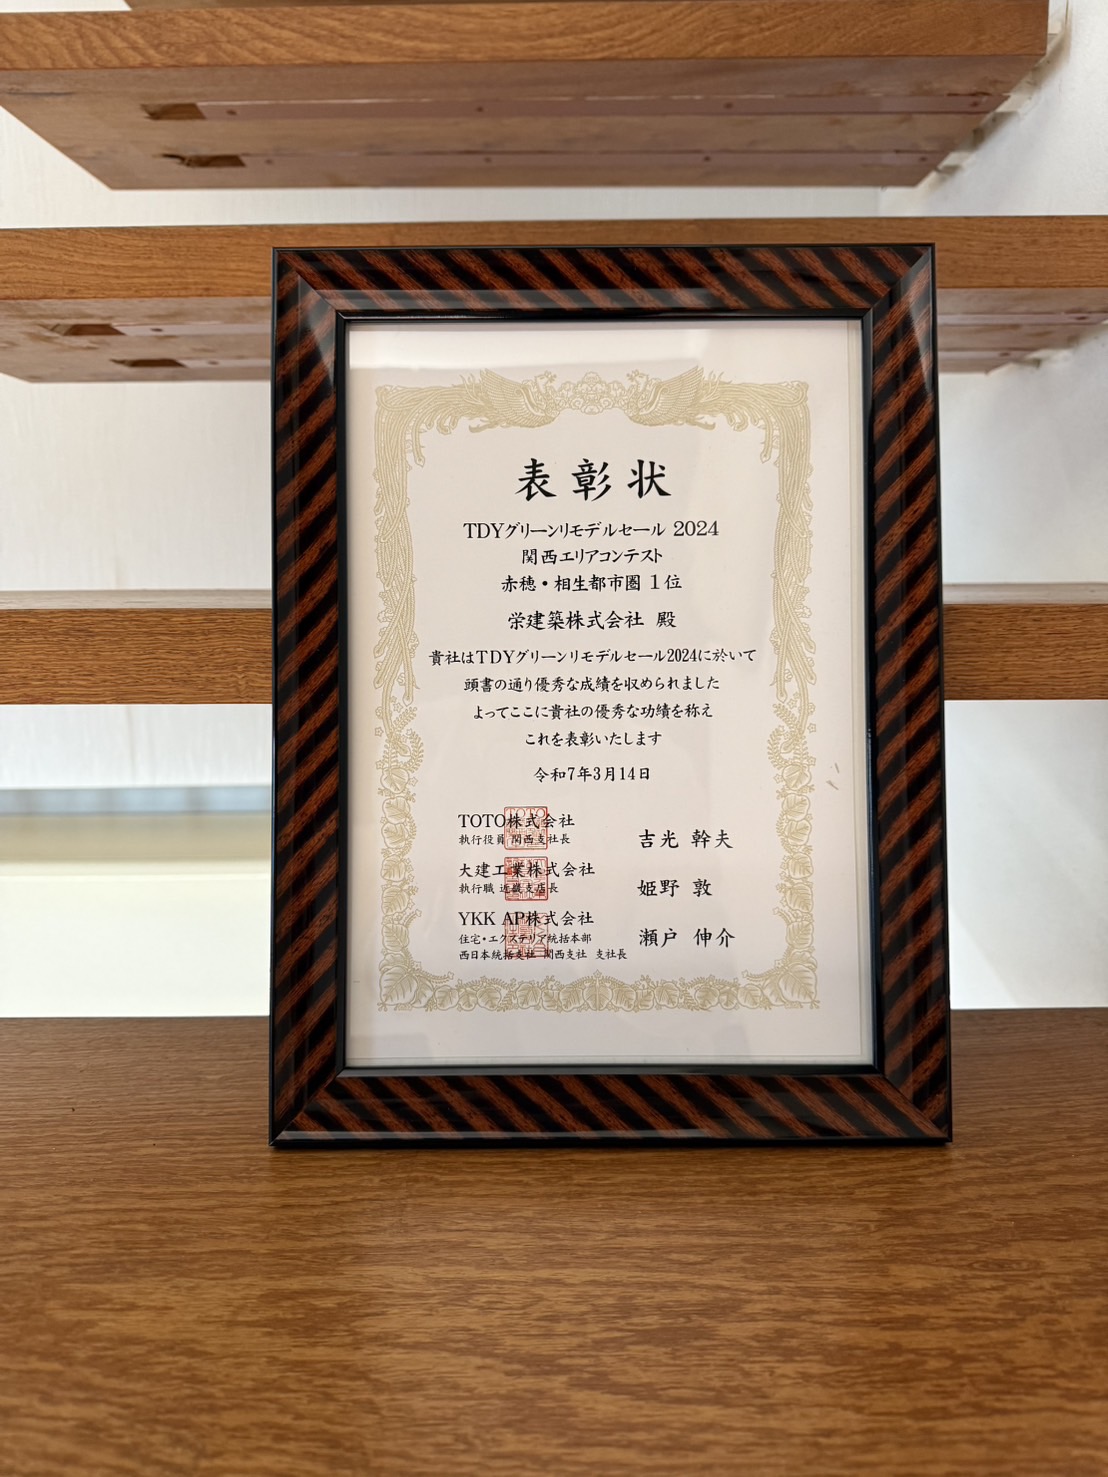 表彰状
TDYグリーンリモデルセール 2024
関西エリアコンテスト
赤穂・相生都市圏 1位
栄建築株式会社 殿
貴社はTDYグリーンリモデルセール2024に於いて
頭書の通り優秀な成績を収められました
よってここに貴社の優秀な功績を称え
これを表彰いたします
令和7年3月14日
TOTO株式会社
執行役員 関西支社長
吉光 幹夫
大建工業株式会社
執行職 近畿支店長
姫野 敦
YKK AP株式会社
住宅・エクステリア統括本部
西日本統括支社 関西支社 支社長
瀬戸 伸介